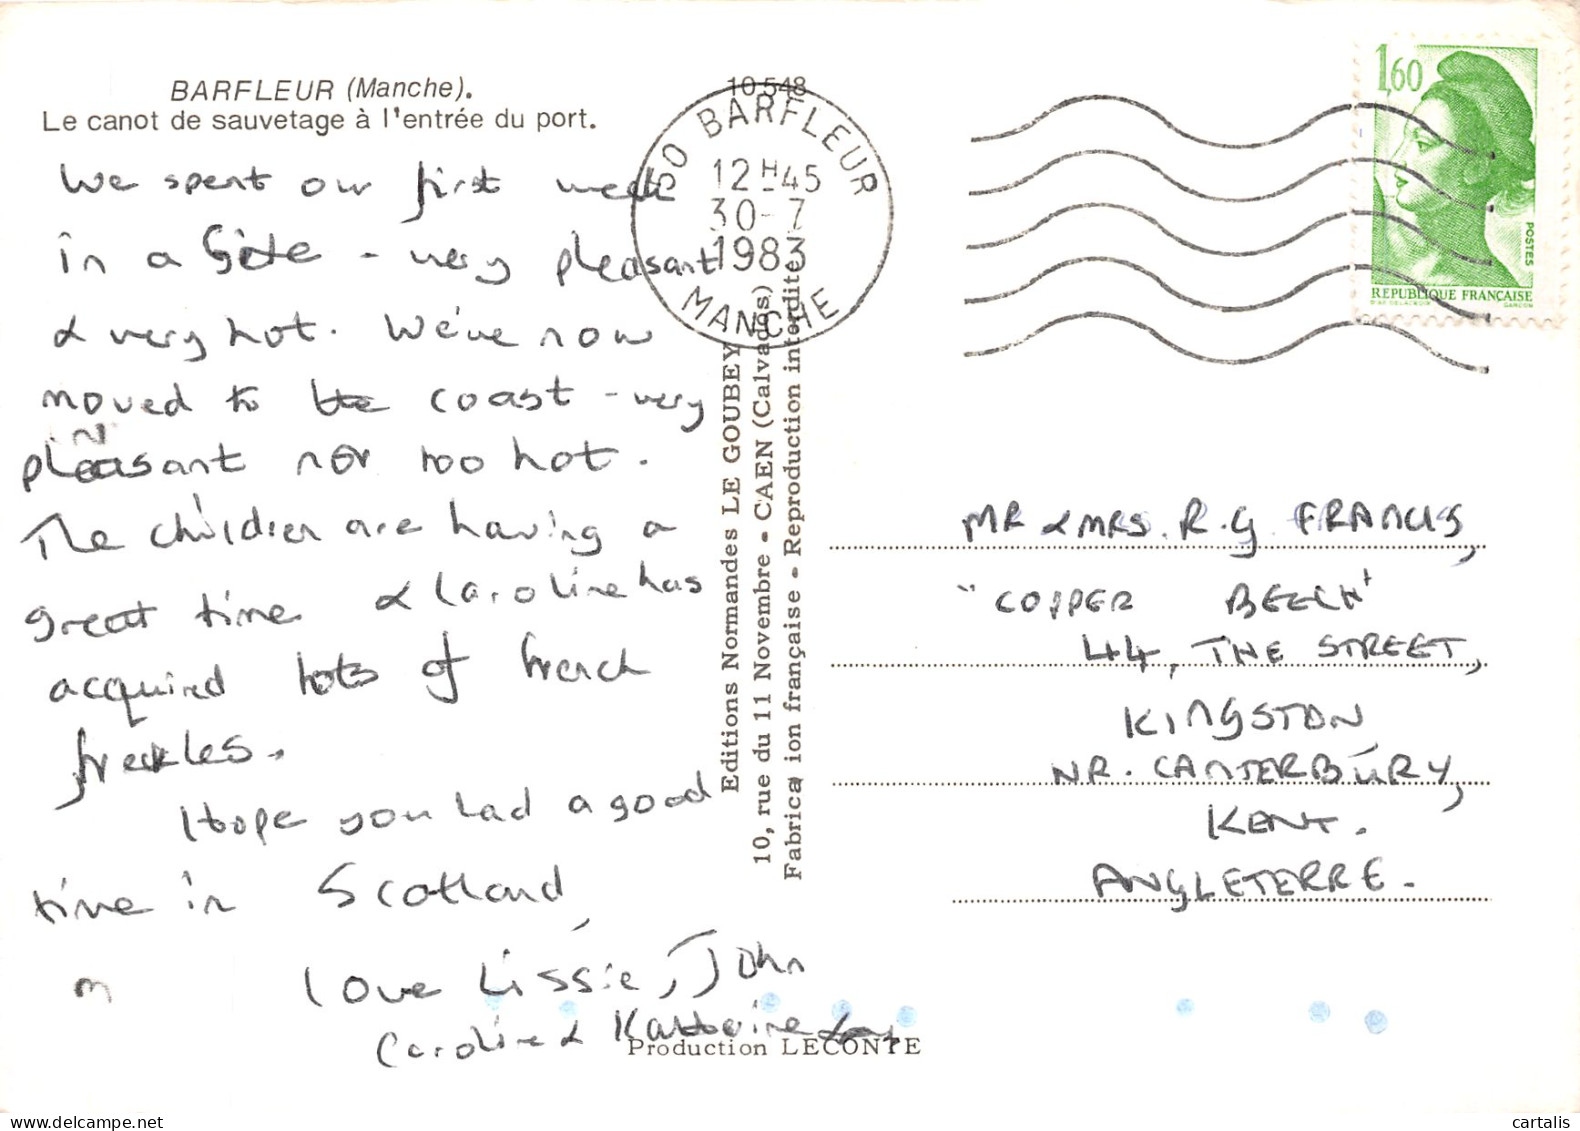 BARFLEUR (Manche).
Le canot de sauvetage à l'entrée du port.
We spent our first week
in a Gîte - very pleasant
& very hot. We've now
moved to the coast - very
pleasant nor too hot.
The children are having a
great time & Caroline has
acquired lots of french
freckles.
Hope you had a good
time in Scotland,
love Lissie, John
Caroline & Katherine
10 548
50 BARFLEUR
12 H 45
30-7
1983
MANCHE
Editions Normandes LE GOUBEY
10, rue du 11 Novembre - CAEN (Calvados)
Fabrica ion française - Reproduction interdite
Production LECONTE
1,60
POSTES
REPUBLIQUE FRANÇAISE
D'AP. DELACROIX GANDON
MR & MRS. R.G FRANCIS,
"COPPER BEECH"
44, THE STREET,
KINGSTON
NR. CANTERBURY,
KENT.
ANGLETERRE.
cartalis